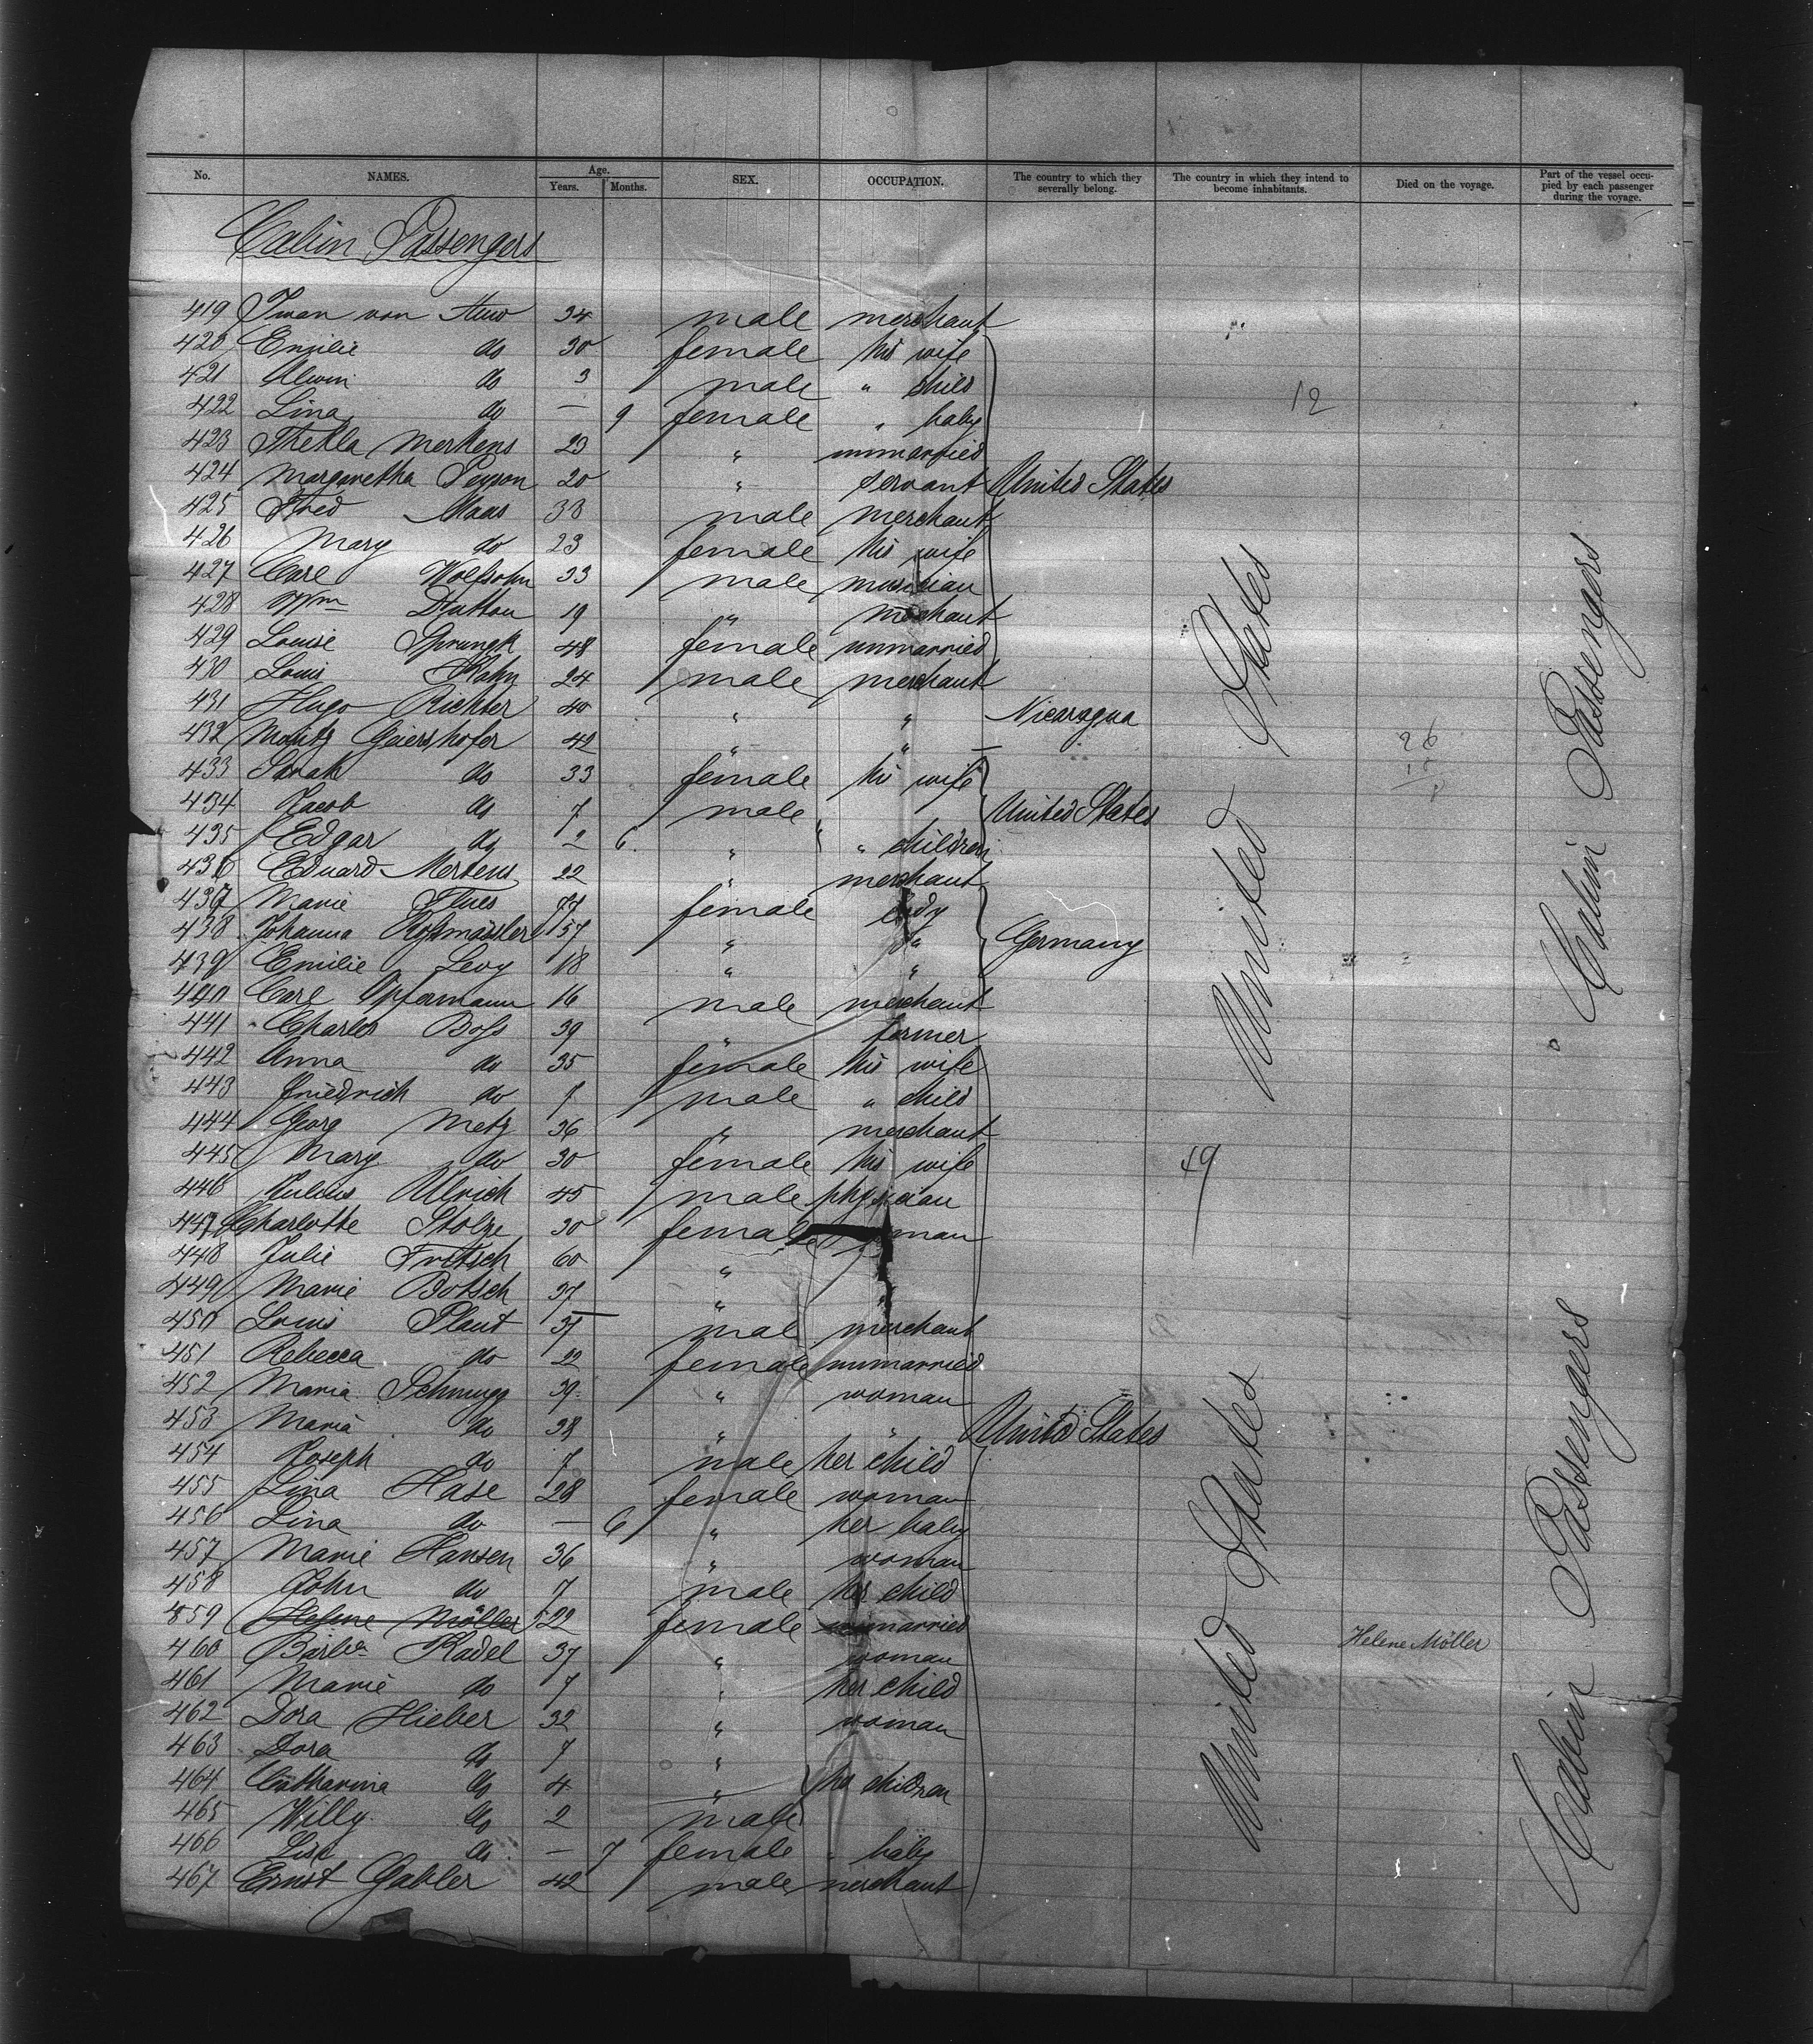 No. NAMES. Age. Years. Months. SEX. OCCUPATION. The country to which they severally belong. The country in which they intend to become inhabitants. Died on the voyage. Part of the vessel occupied by each passenger during the voyage.
Cabin Passengers
419 Iwan von 34 male merchant
420 Emilie do 30 female his wife
421 Alwin do 3 male " child
422 Lina do — 9 female " baby
423 Thekla Merkens 23 " unmarried
424 Margaretha 20 " servant United States
425 Fred Maas 33 male merchant
426 Mary do 23 female his wife
427 Carl Wolfsohn 33 male musician
428 Wm Dutton 19 " merchant
429 Louise Sprungk 48 female unmarried
430 Louis Hahn 24 male merchant
431 Hugo Richter 40 " " Nicaragua
432 Moritz Geiershofer 42 " " —
433 Sarah do 33 female his wife
434 Jacob do 7 male United States
435 Edgar do 2 6 " " children
436 Eduard Mertens 22 " merchant
437 Marie Flues 77 female lady
438 Johanna Roßmässler 57 " " Germany
439 Emilie Levy 18 " "
440 Carl Opfermann 16 male merchant
441 Charles Boss 39 " farmer
442 Anna do 35 female his wife
443 Friedrich do 7 male " child
444 Georg Metz 36 " merchant
445 Mary do 30 female his wife
446 Julius Ullrich 45 male physician
447 Charlotte Stolze 30 female man
448 Julie Fritsch 60 "
449 Marie Botsch 37 " "
450 Louis Plaut 37 mal merchant
451 Rebecca do 22 female unmarried
452 Maria Schmugg 39 " woman
453 Maria do 28 " " United States
454 Joseph do 7 male her child
455 Lina Hase 28 female woman
456 Lina do — 6 " her baby
457 Marie Hansen 36 " woman
458 John do 7 male her child
859 Helene Möller 22 female unmarried Helene Möller
460 Barba Kadel 37 " woman
461 Marie do 7 " her child
462 Dora Hieber 32 " woman
463 Dora do 7 "
464 Catharina do 4 " her children
465 Willy do 2 male
466 Lise do — 7 female " baby
467 Ernst Gabler 42 male merchant
12
26
49
United States
United States
Cabin Passengers
Cabin Passengers